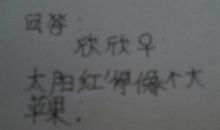 回答:
欣欣早
太阳红得像个大
苹果.